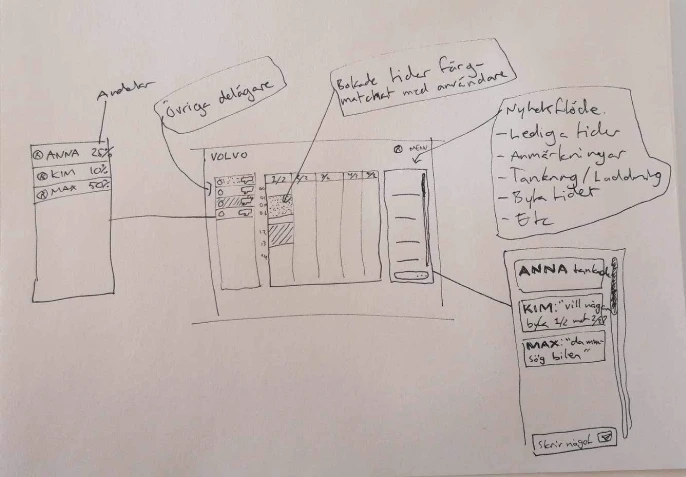 Andelar
ANNA 25%
KIM 10%
MAX 50%
Övriga delägare
Bokade tider färg-
matchat med användare
Nyhetsflöde.
- Lediga tider
- Anmärkningar
- Tankning/Laddning
- Byta tider
- Etc
VOLVO
MENU
1/2
ANNA tankade
KIM: "vill någon
byta 1/2 mot
MAX: "damm-
sög bilen"
Skriv något